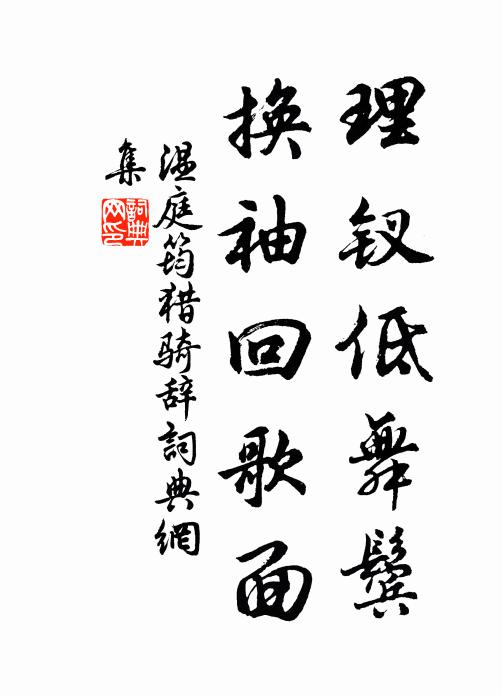 理钗低舞鬓
换袖回歌面
温庭筠猎骑辞詞典網
集
詞典网印